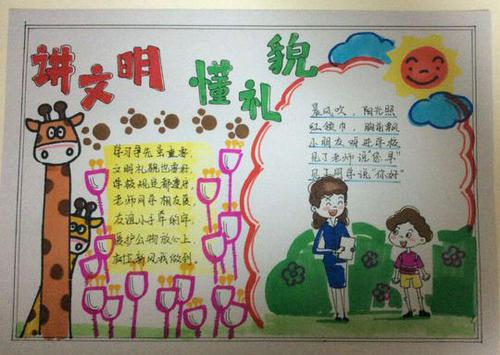 讲文明 懂礼貌
学习争先最重要,
文明礼貌也要好,
学校规定都遵守,
老师同学相友爱,
友谊小手牵的牢,
爱护公物放心上,
树立新风我做到.
晨风吹,阳光照
红领巾,胸前飘
小朋友呀进学校
见了老师说"您早"
见了同学说"你好"